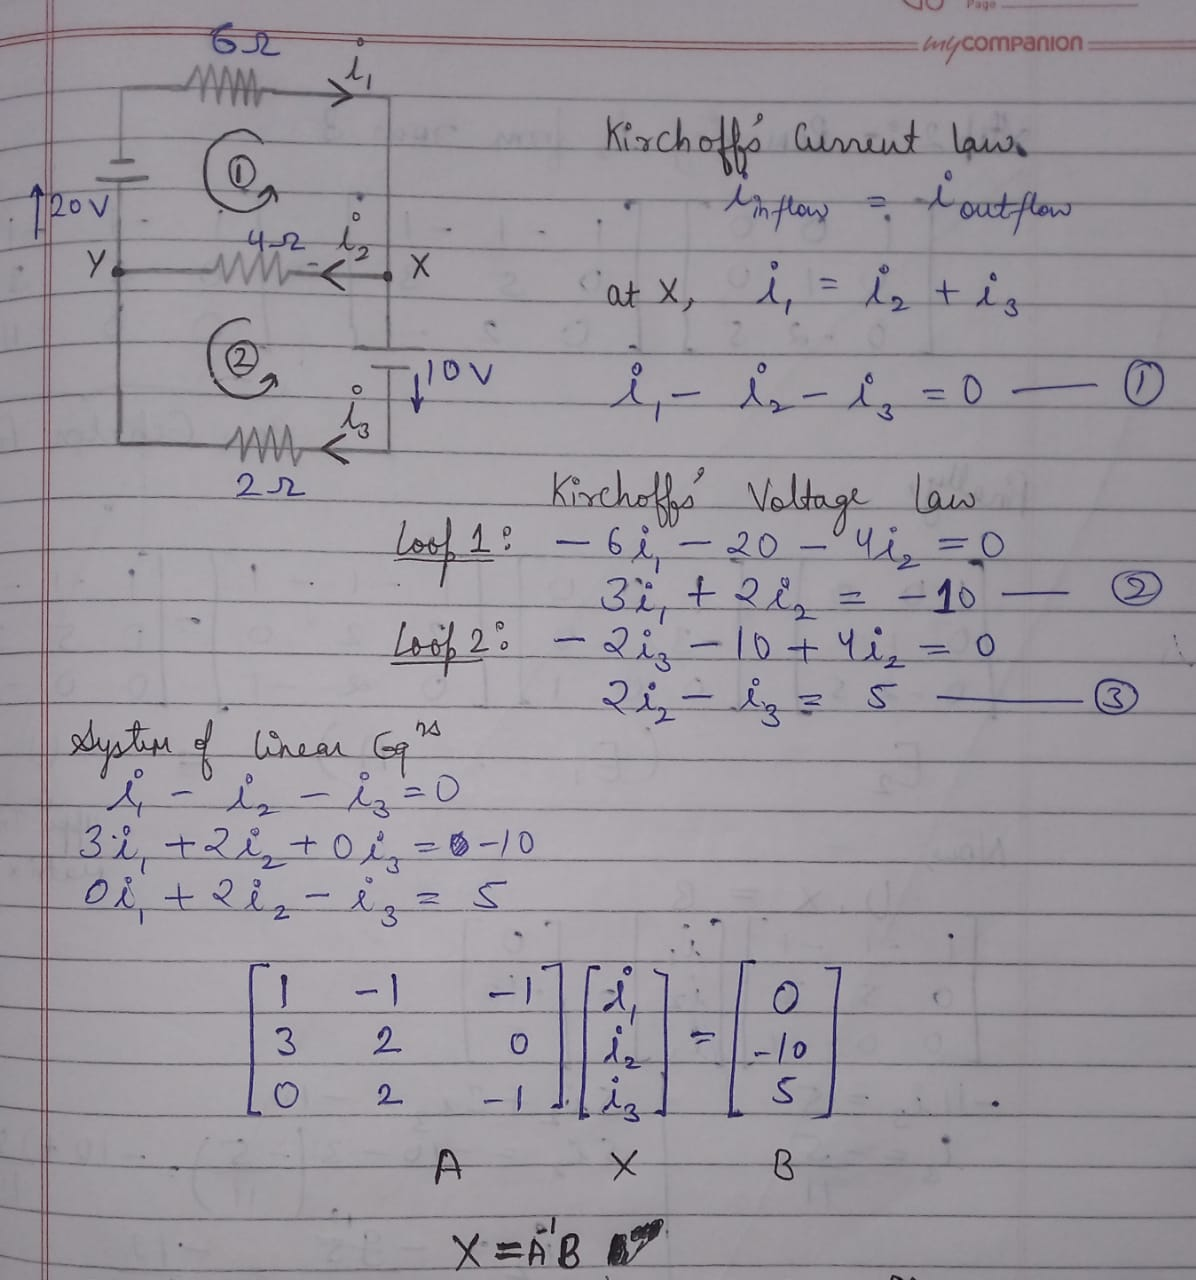 Page
mycompanion
6Ω
i₁
①
20V
4Ω i₂
Y X
②
10V
i₃
2Ω
Kirchoff's Current law.
i inflow = i outflow
at X, i₁ = i₂ + i₃
i₁ - i₂ - i₃ = 0 — ①
Kirchoffs' Voltage Law
Loop 1: - 6i₁ - 20 - 4i₂ = 0
3i₁ + 2i₂ = -10 — ②
Loop 2: - 2i₃ - 10 + 4i₂ = 0
2i₂ - i₃ = 5 — ③
System of linear Eqⁿˢ
i₁ - i₂ - i₃ = 0
3i₁ + 2i₂ + 0i₃ = -10
0i₁ + 2i₂ - i₃ = 5
[1 -1 -1] [i₁] [0]
[3 2 0] [i₂] = [-10]
[0 2 -1] [i₃] [5]
A X B
X = A⁻¹B